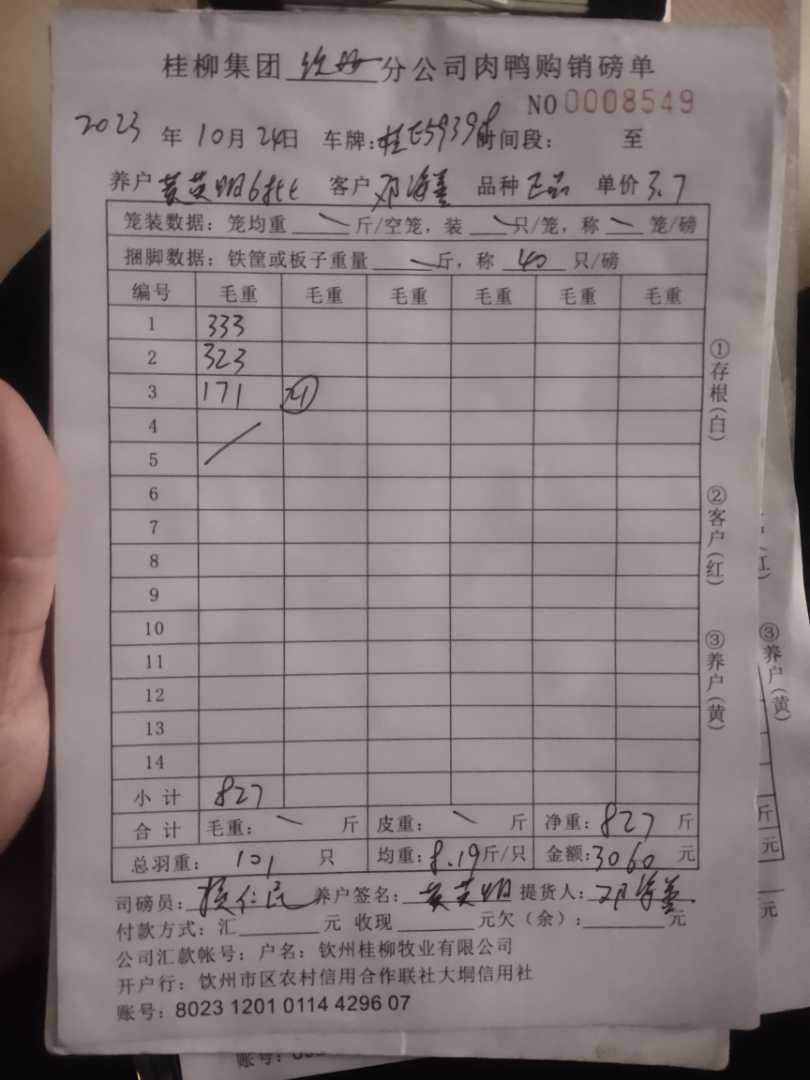 桂柳集团 钦州 分公司肉鸭购销磅单
NO 0008549
2023 年 10月 24日 车牌:桂E5939 时间段: 至
养户 黄英明6批 客户 邓海善 品种 正品 单价 3.7
笼装数据: 笼均重 \ 斤/空笼, 装 \ 只/笼, 称 \ 笼/磅
捆脚数据: 铁筐或板子重量 \ 斤, 称 40 只/磅
编号 毛重 毛重 毛重 毛重 毛重 毛重
1 333
2 323
3 171 21
4
5
6
7
8
9
10
11
12
13
14
小计 827
合计 毛重: \ 斤 皮重: \ 斤 净重: 827 斤
总羽重: 101 只 均重: 8.19斤/只 金额: 3060 元
司磅员: 杨仁民 养户签名: 黄英明 提货人: 邓海善
付款方式: 汇 元 收现 元欠(余): 元
公司汇款帐号: 户名: 钦州桂柳牧业有限公司
开户行: 钦州市区农村信用合作联社大垌信用社
账号: 8023 1201 0114 4296 07
①存根(白)
②客户(红)
③养户(黄)
③养户(黄)
斤
元
元
账号: